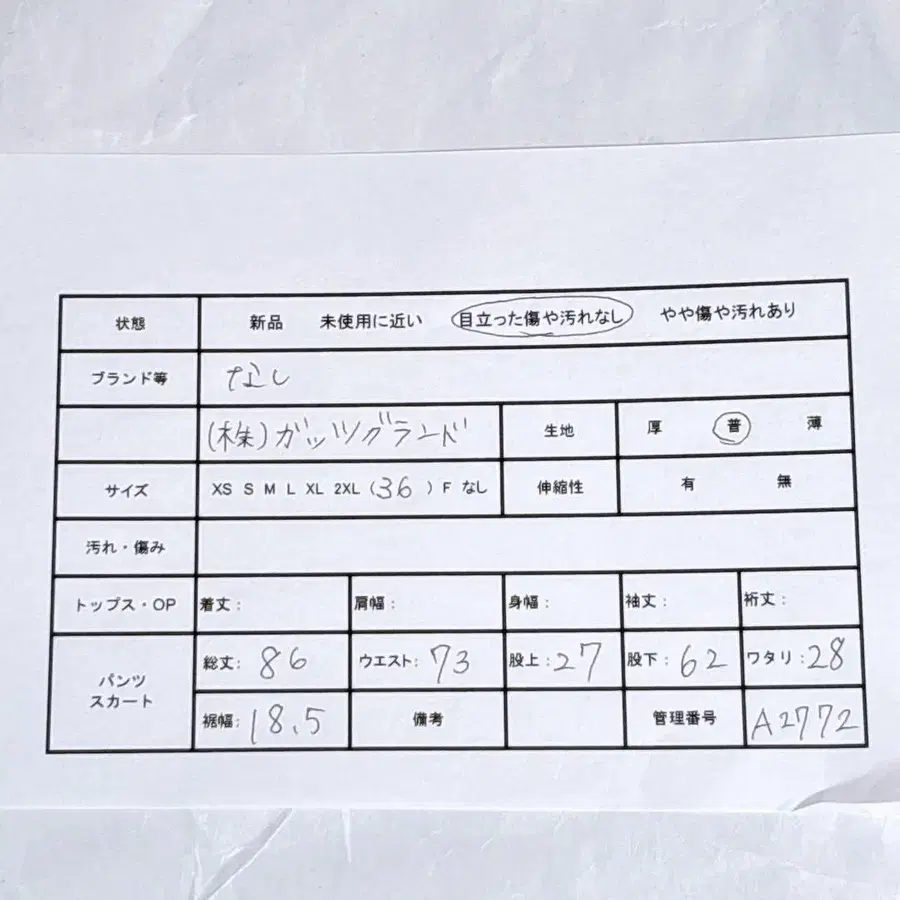 状態 新品 未使用に近い 目立った傷や汚れなし やや傷や汚れあり
ブランド等 なし
(株)ガッツグランド 生地 厚 普 薄
サイズ XS S M L XL 2XL (36) F なし 伸縮性 有 無
汚れ・傷み
トップス・OP 着丈: 肩幅: 身幅: 袖丈: 裄丈:
パンツ スカート 総丈: 86 ウエスト: 73 股上: 27 股下: 62 ワタリ: 28
裾幅: 18.5 備考 管理番号 A2772